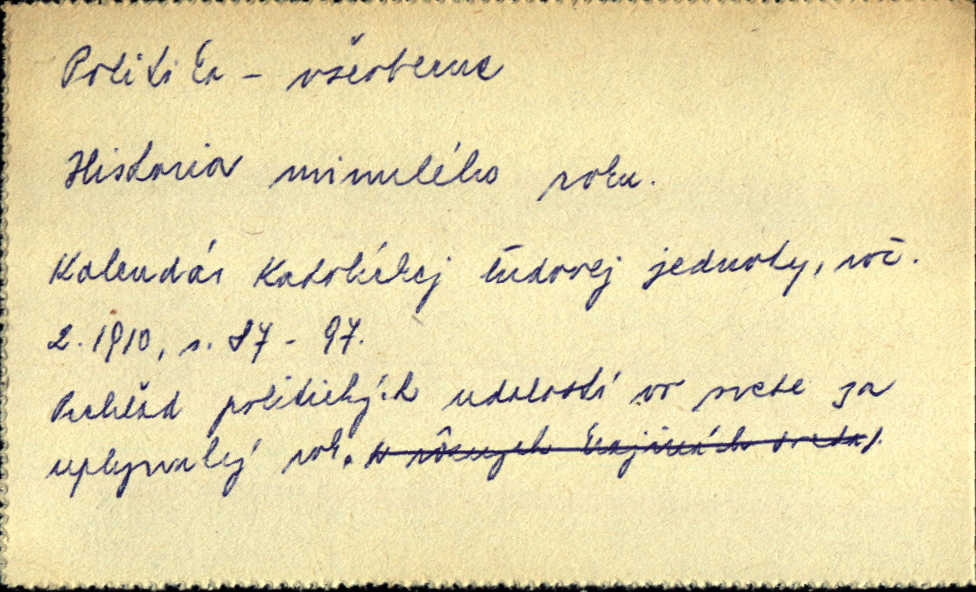 Politika - všeobecne
Historia minulého roku.
Kalendár Katolíckej ľudovej jednoty, roč.
2. 1910, s. 87 - 97.
Prehľad politických udalostí vo svete za
uplynulý rok. v rôznych krajinách sveta).